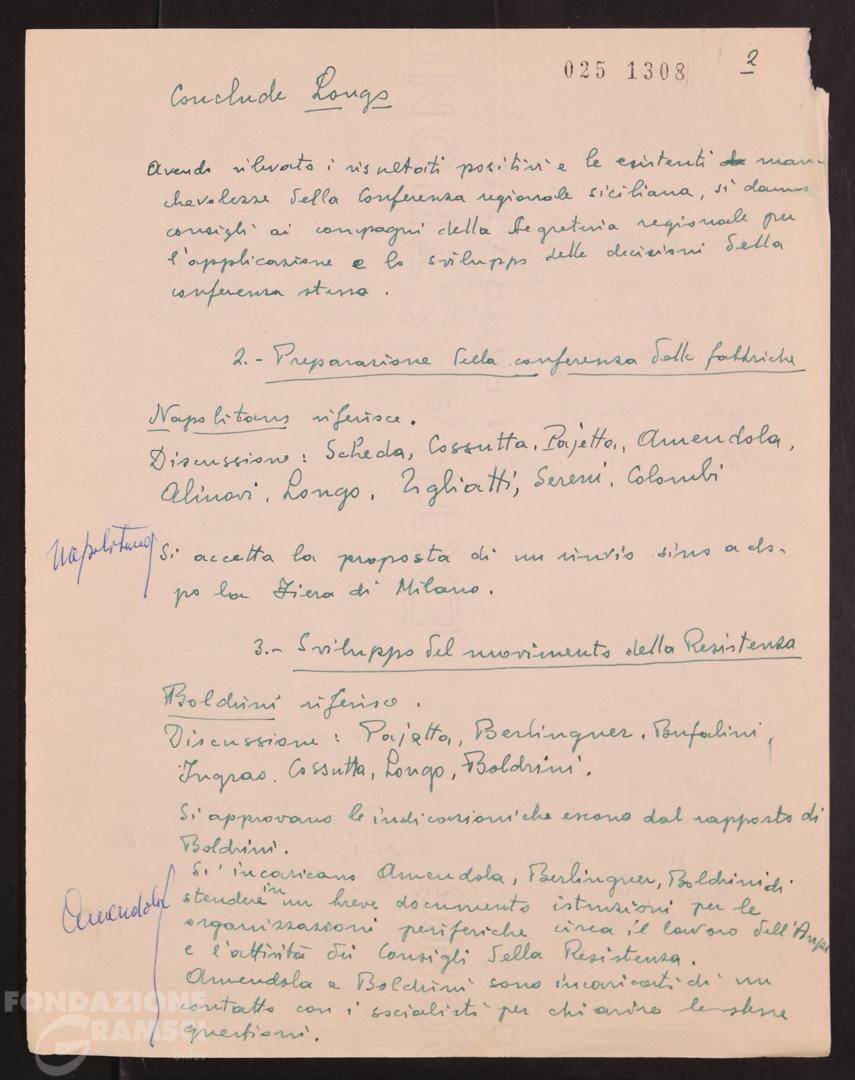 025 1308
2
Conclude Longo
Avendo rilevato i risultati positivi e le esistenti man-
chevolezze della Conferenza regionale siciliana, si danno
consigli ai compagni della Segreteria regionale per
l'applicazione e lo sviluppo delle decisioni della
conferenza stessa.
2.- Preparazione della conferenza delle fabbriche
Napolitano riferisce.
Discussione: Scheda, Cossutta, Pajetta, Amendola,
Alinovi, Longo, Togliatti, Sereni, Colombi
Napolitano
Si accetta la proposta di un rinvio sino a do-
po la Fiera di Milano.
3.- Sviluppo del movimento della Resistenza
Boldrini riferisce.
Discussione: Pajetta, Berlinguer, Bufalini,
Ingrao, Cossutta, Longo, Boldrini.
Si approvano le indicazioni che escono dal rapporto di
Boldrini.
Si incaricano Amendola, Berlinguer, Boldrini di
Amendola
stendere in un breve documento istruzioni per le
organizzazioni periferiche circa il lavoro dell'Anpi
e l'attività dei Consigli della Resistenza.
Amendola e Boldrini sono incaricati di un
contatto con i socialisti per chiarire le stesse
questioni.
FONDAZIONE
GRAMSCI
onlus